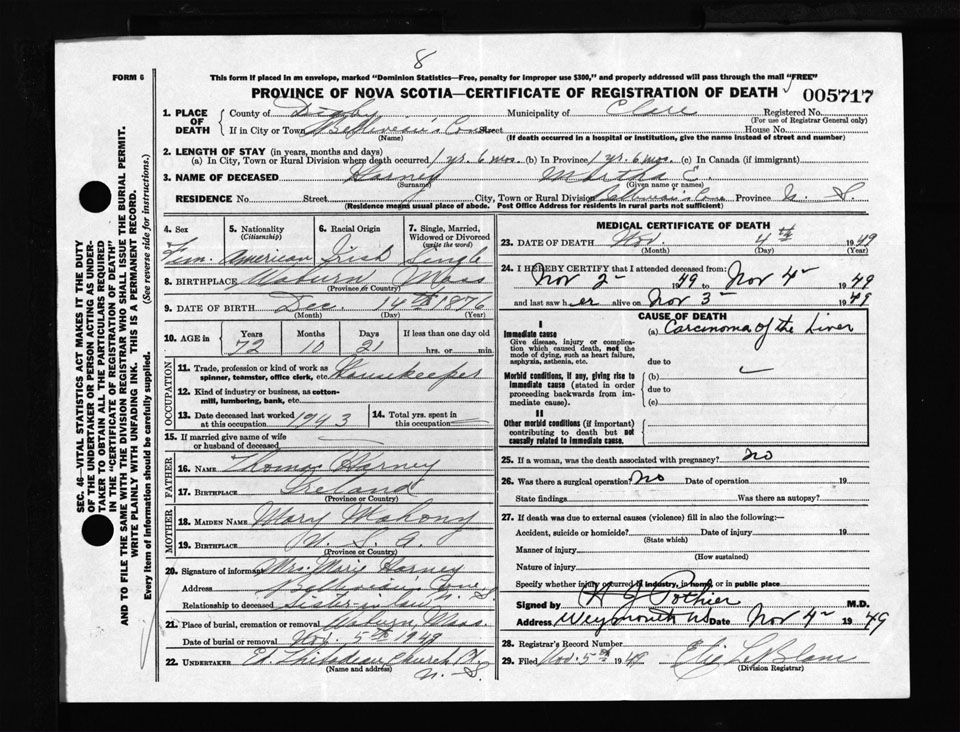 8
FORM 6
This form if placed in an envelope, marked "Dominion Statistics—Free, penalty for improper use $300," and properly addressed will pass through the mail "FREE"
PROVINCE OF NOVA SCOTIA—CERTIFICATE OF REGISTRATION OF DEATH
005717
1. PLACE OF DEATH
County of Digby Municipality of Clare Registered No.
(For use of Registrar General only)
If in City or Town Cove Street House No.
(Name) (If death occurred in a hospital or institution, give the name instead of street and number)
2. LENGTH OF STAY (in years, months and days)
(a) In City, Town or Rural Division where death occurred 1 yr. 6 mos. (b) In Province 1 yr. 6 mos. (c) In Canada (if immigrant)
3. NAME OF DECEASED Harney Martha E.
(Surname) (Given name or names)
RESIDENCE No. Street City, Town or Rural Division Cove Province N. S.
(Residence means usual place of abode. Post Office Address for residents in rural parts not sufficient)
4. Sex Fem.
5. Nationality (Citizenship) American
6. Racial Origin Irish
7. Single, Married, Widowed or Divorced (write the word) Single
8. BIRTHPLACE Woburn Mass
(Province or Country)
9. DATE OF BIRTH Dec. 14th 1876
(Month) (Day) (Year)
10. AGE in
Years Months Days If less than one day old
72 10 21 hrs. or min.
OCCUPATION
11. Trade, profession or kind of work as spinner, teamster, office clerk, etc. Housekeeper
12. Kind of industry or business, as cotton-mill, lumbering, bank, etc.
13. Date deceased last worked at this occupation 1943
14. Total yrs. spent in this occupation —
15. If married give name of wife or husband of deceased —
FATHER
16. NAME Thomas Harney
17. BIRTHPLACE Ireland
(Province or Country)
MOTHER
18. MAIDEN NAME Mary Mahony
19. BIRTHPLACE U. S. A.
(Province or Country)
20. Signature of informant Mrs. Marie Harney
Address Cove N. S
Relationship to deceased Sister in law
21. Place of burial, cremation or removal Woburn, Mass.
Date of burial or removal Nov. 5th 1949
22. UNDERTAKER Ed. Church Pt.
(Name and address) N. S.
MEDICAL CERTIFICATE OF DEATH
23. DATE OF DEATH Nov. 4th 1949
(Month) (Day) (Year)
24. I HEREBY CERTIFY that I attended deceased from:
Nov 2- 1949 to Nov 4- 1949
and last saw her alive on Nov 3- 1949
CAUSE OF DEATH
I
Immediate cause
Give disease, injury or complication which caused death, not the mode of dying, such as heart failure, asphyxia, asthenia, etc.
(a) Carcinoma of the Liver
due to
Morbid conditions, if any, giving rise to immediate cause (stated in order proceeding backwards from immediate cause).
(b)
due to
(c)
II
Other morbid conditions (if important) contributing to death but not causally related to immediate cause.
25. If a woman, was the death associated with pregnancy? No
26. Was there a surgical operation? No Date of operation 19
State findings Was there an autopsy?
27. If death was due to external causes (violence) fill in also the following:—
Accident, suicide or homicide? Date of injury 19
(State which)
Manner of injury
(How sustained)
Nature of injury
Specify whether injury occurred in industry, in home, or in public place
Signed by H J Pothier M.D.
Address Weymouth NS Date Nov 4- 1949
28. Registrar's Record Number
29. Filed Nov. 5th 1949 LeBlanc
(Division Registrar)
SEC. 46—VITAL STATISTICS ACT MAKES IT THE DUTY
OF THE UNDERTAKER OR PERSON ACTING AS UNDER-
TAKER TO OBTAIN ALL THE PARTICULARS REQUIRED
IN THE "CERTIFICATE OF REGISTRATION OF DEATH"
AND TO FILE THE SAME WITH THE DIVISION REGISTRAR WHO SHALL ISSUE THE BURIAL PERMIT.
WRITE PLAINLY WITH UNFADING INK. THIS IS A PERMANENT RECORD.
Every item of information should be carefully supplied. (See reverse side for instructions.)